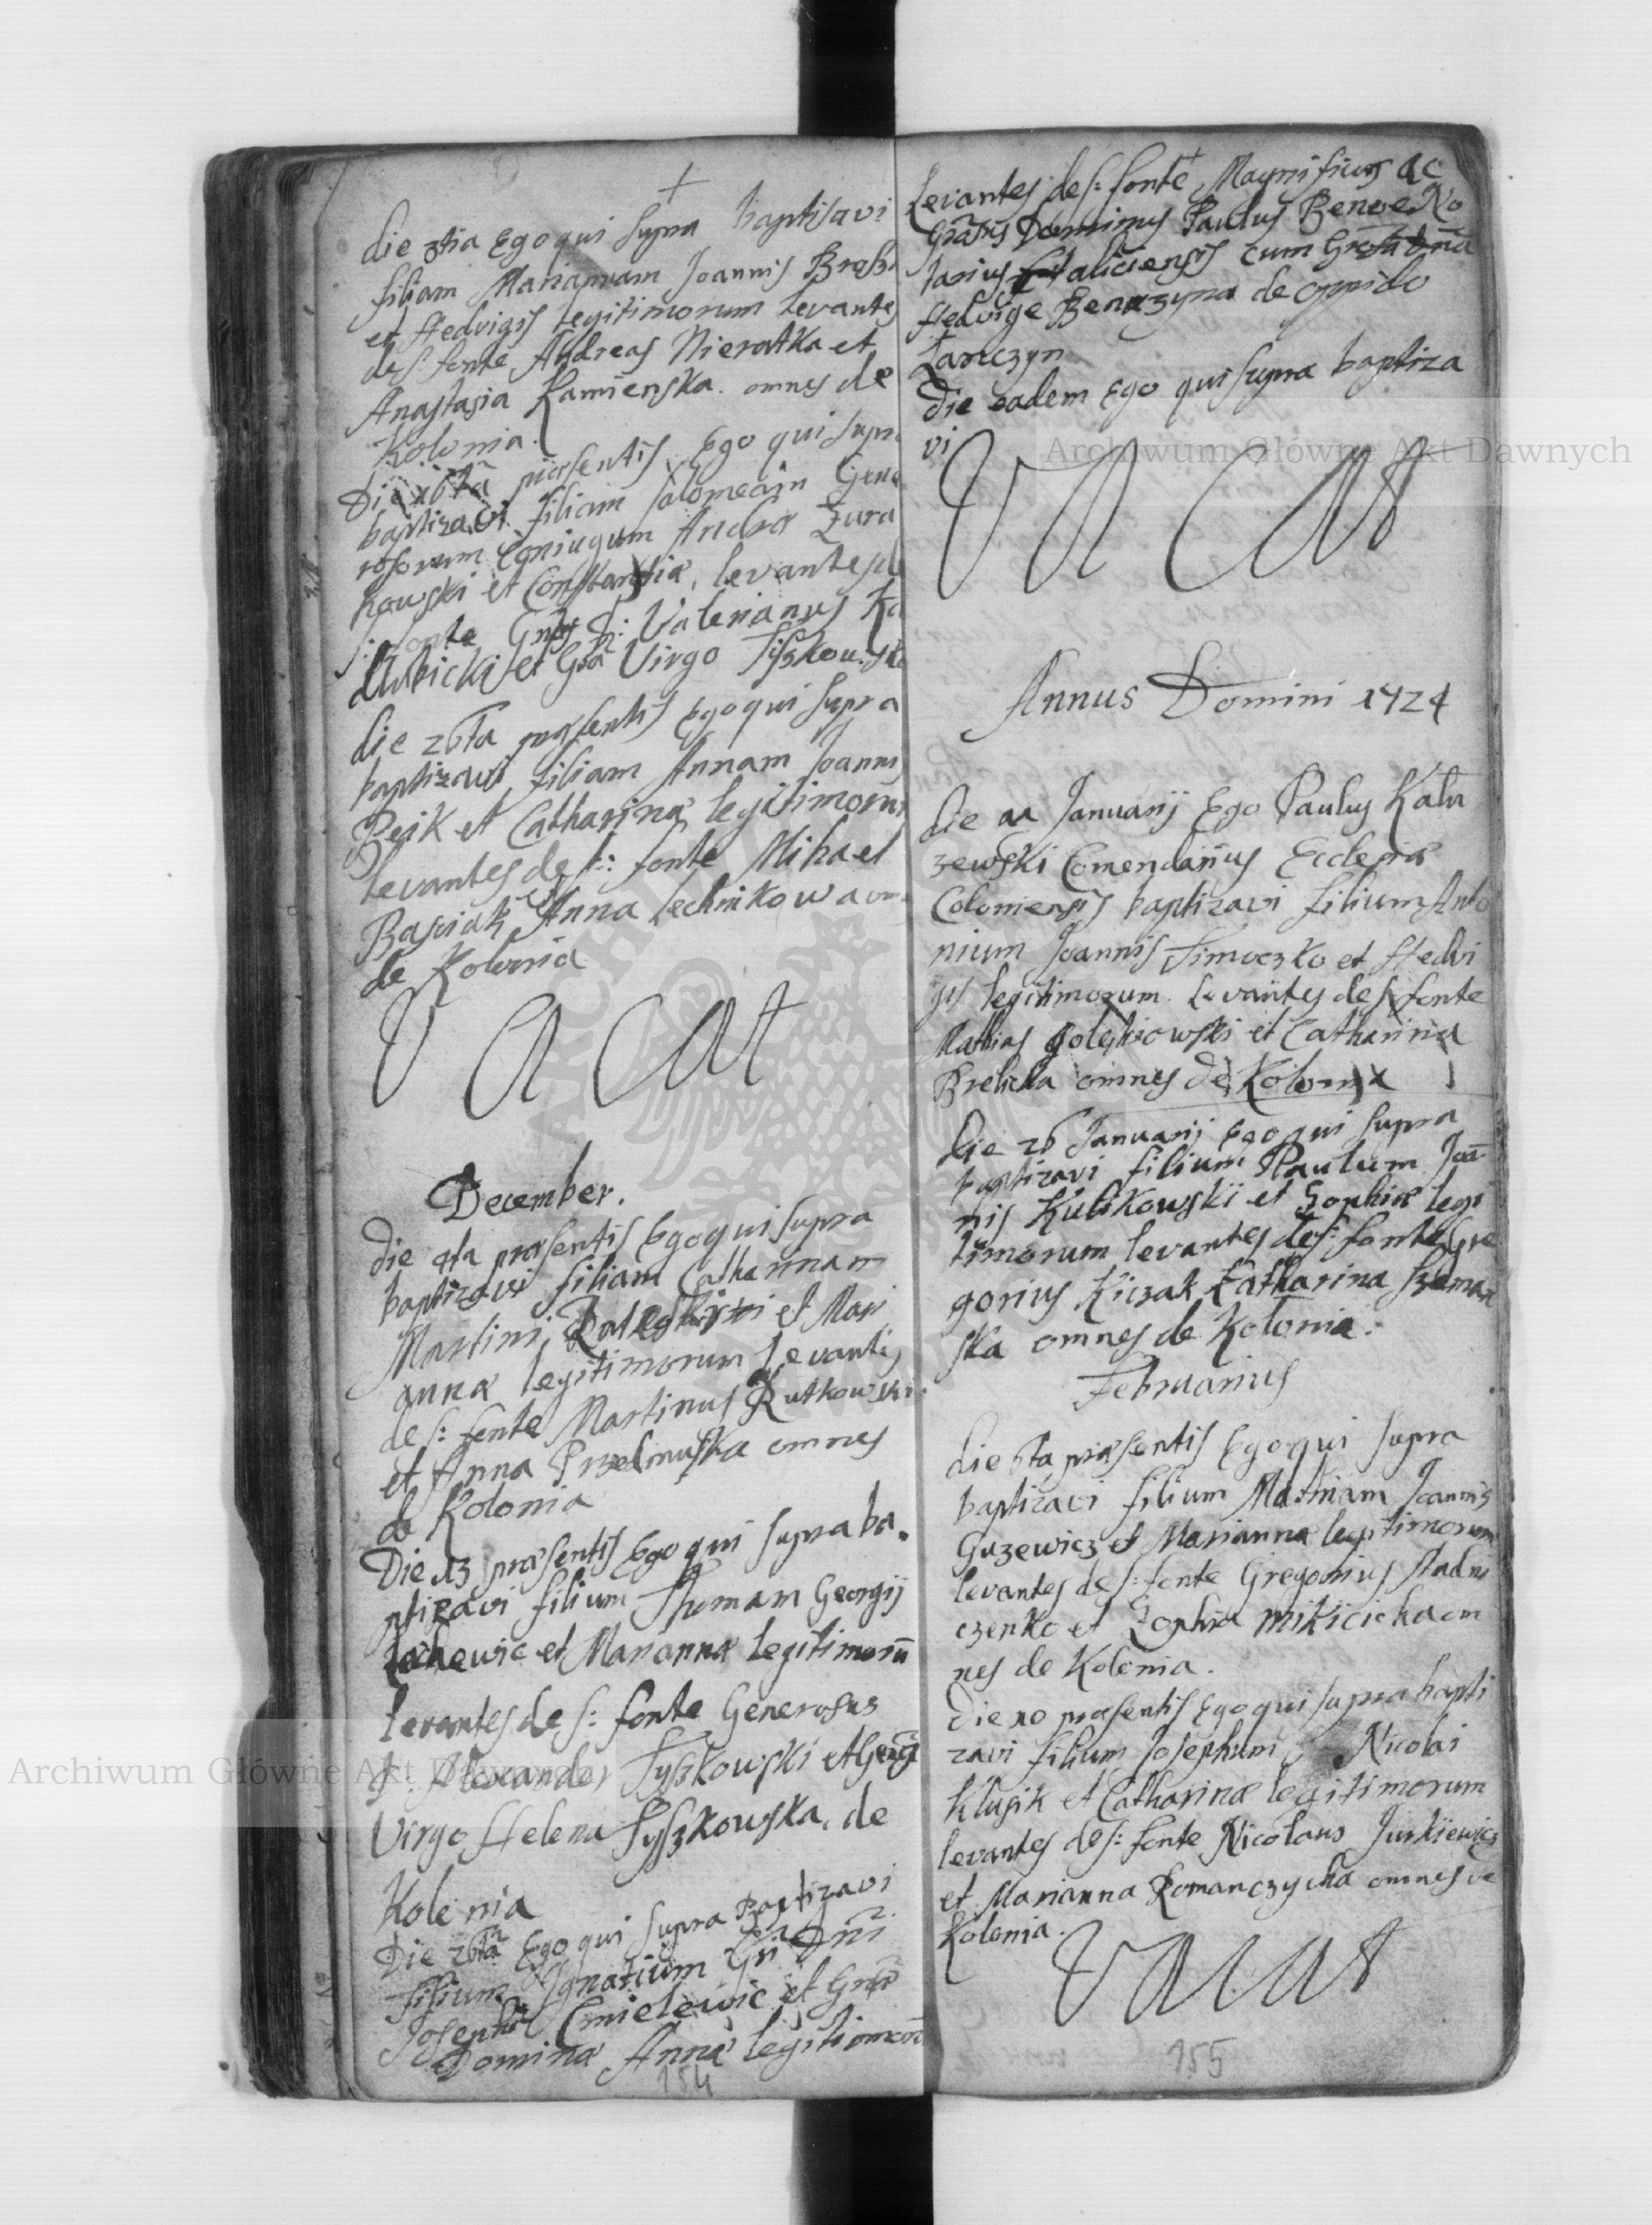 die 3tia Ego qui supra baptisavi
filiam Mariannam Joannis
et Hedvigis legitimorum levantes
de s: fonte Andreas Nieratka et
Anastasia Kamienska omnes de
Kolonia.
Die præsentis Ego qui supra
baptizavi filiam Salomeam Gene
rosorum Coniugum Zura
kowski et Constantiæ, levantes de
s: fonte D: Valerianus
et Virgo
die 26ta præsentis Ego qui supra
baptizavi filiam Annam Joannis
et Catharinæ legitimorum
levantes de s: fonte Mihael
Basiak Anna
de Kolonia
Vacat
December.
die 4ta præsentis Ego qui supra
baptizavi filiam Catharinam
Martini et Mari
annæ legitimorum levantes
de s: fonte Martinus Rutkowski
et Anna omnes
de Kolonia
Die 13 præsentis Ego qui supra ba
ptizavi filium Thomam Georgij
et Mariannæ legitimorū
levantes de s: fonte Generosus
D: Alexander Tyszkowski et
Virgo Helena Tyszkowska, de
Kolonia
Die 26ta Ego qui supra Baptizavi
filium Ignatium Gñ Dñi
Josephi Cmielewic et
Dominæ Annæ legitimorū
154
Levantes de s: fonte Magnificus ac
Dominus Paulus Benoe No
tarius Haliciensis cum
Hedvige de oppido
Tarczyn
Die eadem Ego qui supra baptiza
vi
Vacat
Annus Domini 1724
die 11 Januarij Ego Paulus Kalu
zewski Comendarius Ecclesiæ
Coloniensis baptizavi filium Anto
nium Joannis Simoczko et Hedvi
gis legitimorum. Levantes de s: fonte
Mathias et Catharina
omnes de Kolonia
die 26 Januarij Ego qui supra
baptizavi filium Paulum Joā
nis Kulikowski et Sophiæ legi
timorum levantes de s: fonte Gre
gorius Kiczak Katharina
ska omnes de Kolonia.
Februarius
die 6ta præsentis Ego qui supra
baptizavi filium Joannis
Guzewicz et Mariannæ legitimorum
levantes de s: fonte Gregorius Stadni
czenko et Zophia om
nes de Kolonia.
die 10 præsentis Ego qui supra bapti
zavi filium Josephum Nicolai
Klusik et Catharinæ legitimorum
levantes de s: fonte Nicolaus Jurkiewicz
et Marianna Romanczycha omnes de
Kolonia.
Vacat
155
Archiwum Główne Akt Dawnych
Archiwum Główne Akt Dawnych